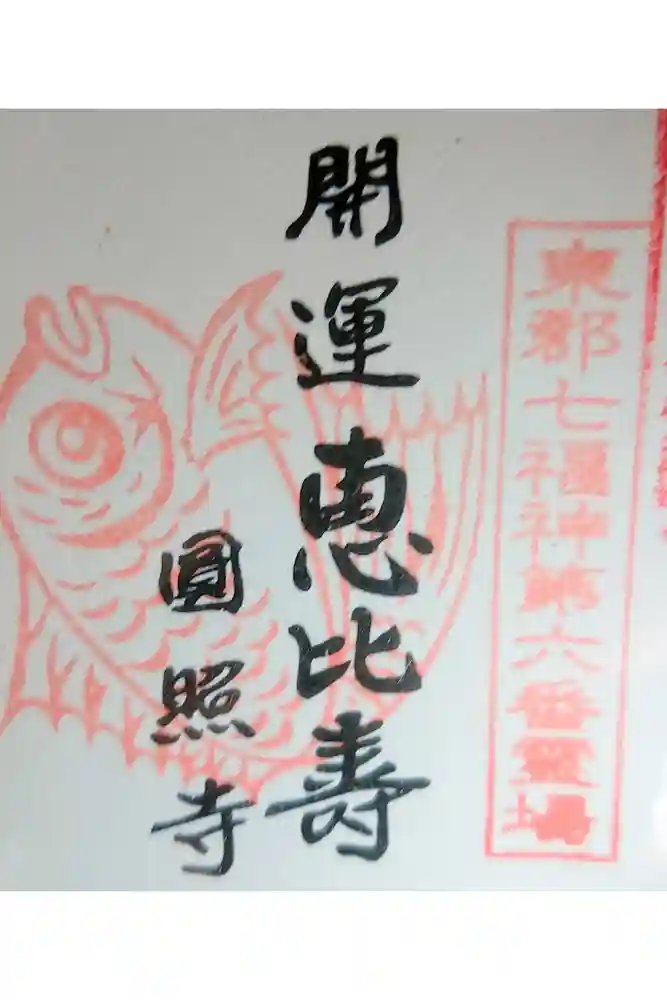 東郡七福神第六番霊場
開運恵比寿
圓照寺